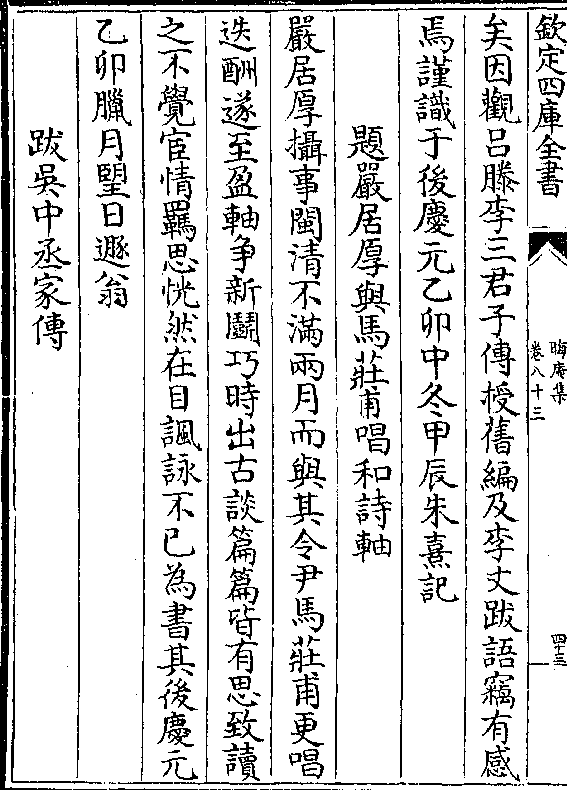 欽定四庫全書
晦庵集
卷八十三
四十三
矣因觀呂滕李三君子傳授舊編及李丈跋語竊有感
焉謹識于後慶元乙卯中冬甲辰朱熹記
題嚴居厚與馬莊甫唱和詩軸
嚴居厚攝事閩清不滿兩月而與其令尹馬莊甫更唱
迭酬遂至盈軸争新鬬巧時出古談篇篇皆有思致讀
之不覺宦情羈思恍然在目諷詠不已為書其後慶元
乙卯臘月朢日遯翁
跋吳中丞家傳